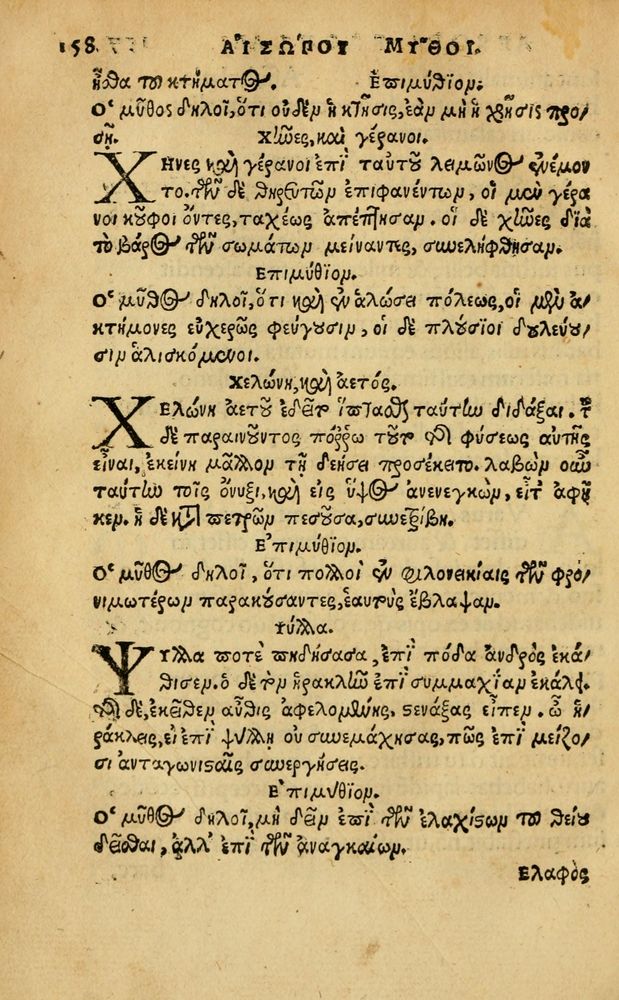 158 ΑΙΣΩΠΟΥ ΜΥΘΟΙ.
ᾖσθα τοῦ κτήματος. Ἐπιμύθιον.
Ὁ μῦθος δηλοῖ, ὅτι οὐδὲν ἡ κτῆσις, ἐὰν μὴ ἡ χρῆσις προσ
ῇ. Χῆνες, καὶ γέρανοι.
ΧΗνες καὶ γέρανοι ἐπὶ ταὐτοῦ λειμῶνος ἐνέμον
το. τῶν δὲ θηρευτῶν ἐπιφανέντων, οἱ μὲν γέρα
νοι κοῦφοι ὄντες, ταχέως ἀπέπτησαν. οἱ δὲ χῆνες διὰ
τὸ βάρος τῶν σωμάτων μείναντες, συνελήφθησαν.
Ἐπιμύθιον.
Ὁ μῦθος δηλοῖ, ὅτι καὶ ἐν ἁλώσει πόλεως, οἱ μὲν ἀ
κτήμονες εὐχερῶς φεύγουσιν, οἱ δὲ πλούσιοι δουλεύου
σιν ἁλισκόμενοι.
Χελώνη, καὶ ἀετός.
ΧΕλώνη ἀετοῦ ἐδεῖτο ἵπτασθαι ταύτην διδάξαι. τοῦ
δὲ παραινοῦντος πόῤῥω τοῦτο τῆς φύσεως αὐτῆς
εἶναι, ἐκείνη μᾶλλον τῇ δεήσει προσέκειτο. λαβὼν οὖν
ταύτην τοῖς ὄνυξι, καὶ εἰς ὕψος ἀνενεγκὼν, εἶτ’ ἀφῆ
κεν. ἡ δὲ κατὰ πετρῶν πεσοῦσα, συνετρίβη.
Ἐπιμύθιον.
Ὁ μῦθος δηλοῖ, ὅτι πολλοὶ ἐν φιλονεικίαις τῶν φρο
νιμωτέρων παρακούσαντες, ἑαυτοὺς ἔβλαψαν.
Ψύλλα.
ΨΥλλα ποτὲ πηδήσασα, ἐπὶ πόδα ἀνδρὸς ἐκά
θισεν. ὁ δὲ τὸν ἡρακλῆν ἐπὶ συμμαχίαν ἐκάλει.
τῆς δὲ, ἐκεῖθεν αὖθις ἀφελομένης, στενάξας εἶπεν. ὦ ἡ
ράκλεις, εἰ ἐπὶ ψύλλῃ οὐ συνεμάχησας, πῶς ἐπὶ μείζο
σι ἀνταγωνισταῖς συνεργήσεις.
Ἐπιμύθιον.
Ὁ μῦθος δηλοῖ, μὴ δεῖν ἐπὶ τῶν ἐλαχίστων τοῦ θείου
δεῖσθαι, ἀλλ’ ἐπὶ τῶν ἀναγκαίων.
Ελαφὸς